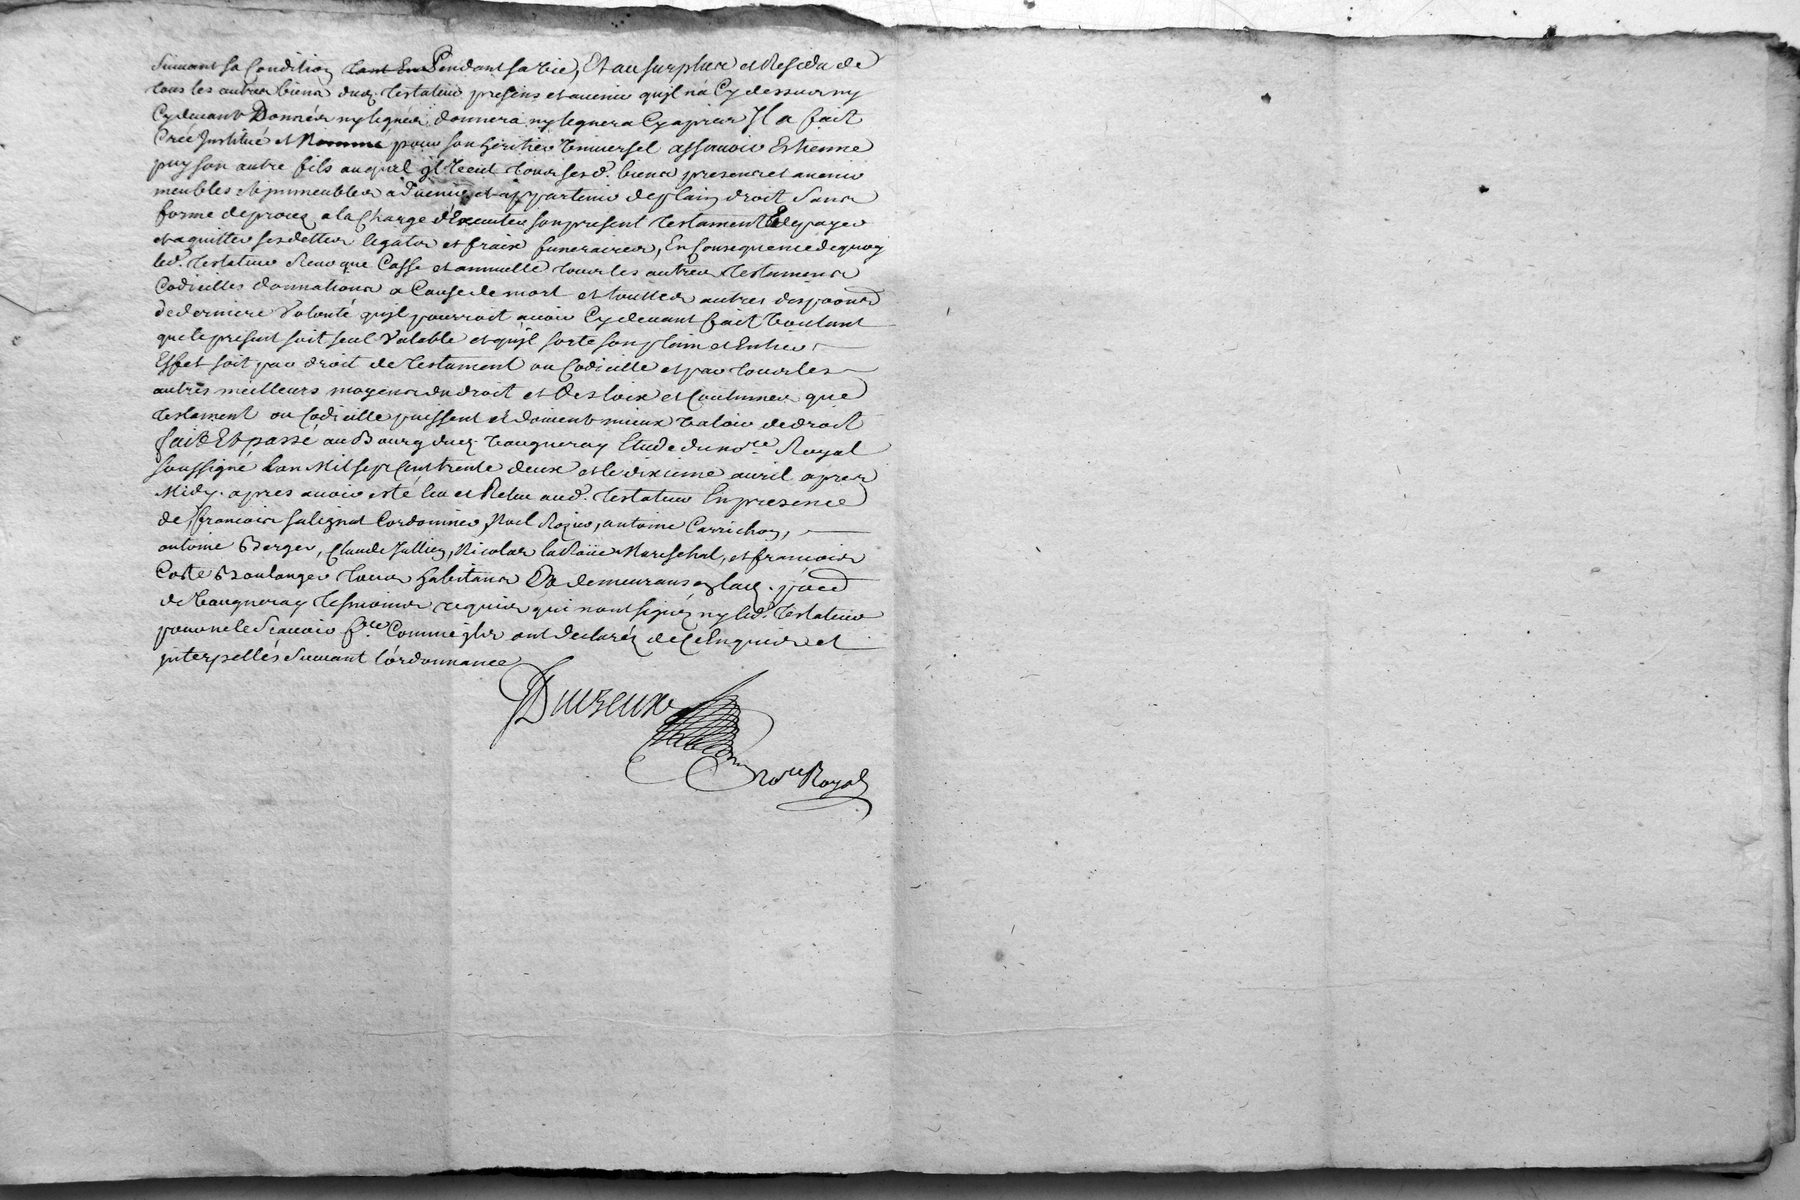 Suivant sa Condition tant En Pendant sa vie, Et au surplus et Residu de
tous les autres biens dud. testateur presens et avenir qu'jl n'a Cy dessus ny
Cy devant Donnés ny legués donnera ny leguera Cy apres Jl a fait
Créé Jnstitué et Nommé pour son heritier Universel assavoir Estienne
puy son autre fils auquel jl veut tous sesd. biens presens et avenir
meubles et jmmeubles advenir et appartenir de plain droit Sans
forme de procez a la Charge d'Executer son present testament Et de payer
et aquitter ses dettes legats et fraix funeraires, En Consequence de quoy
led. testateur Revoque Casse et annulle tous les autres testamens
Codicilles donnations a Cause de mort et touttes autres dispoons
de derniere Volonté qu'jl pourroit avoir Cy devant fait voulant
que le present soit seul Valable et qu'jl sorte son plain et Entier
Effet soit par droit de testament ou Codicille et par tous les
autres meilleurs moyens du droit et des loix et Coutumes que
testament ou Codicille puissent et doivent mieux valoir de droit
fait Et passé au Bourg dud. Vaugneray Etude du nore. Royal
soussigné L'an Mil sept Cent trente deux et le dixieme avril apres
Midy. apres avoir esté lu et Relu aud. testateur En presence
de ffrancois salignat Cordonnier, Noel Rozier, antoine Carrichon,
antoine Berger, Claude Jullien, Nicolas la Mareschal, et francois
Coste Boulanger tous habitans Et demeurans en lad. pssed
de Vaugneray tesmoins requis qui n'ont signés ny led. testateur
pour ne le scavoir fre. Comme jls ont declarés de ce Enquis et
jnterpellés suivant l'ordonnance
Duzeux
Nore Royal